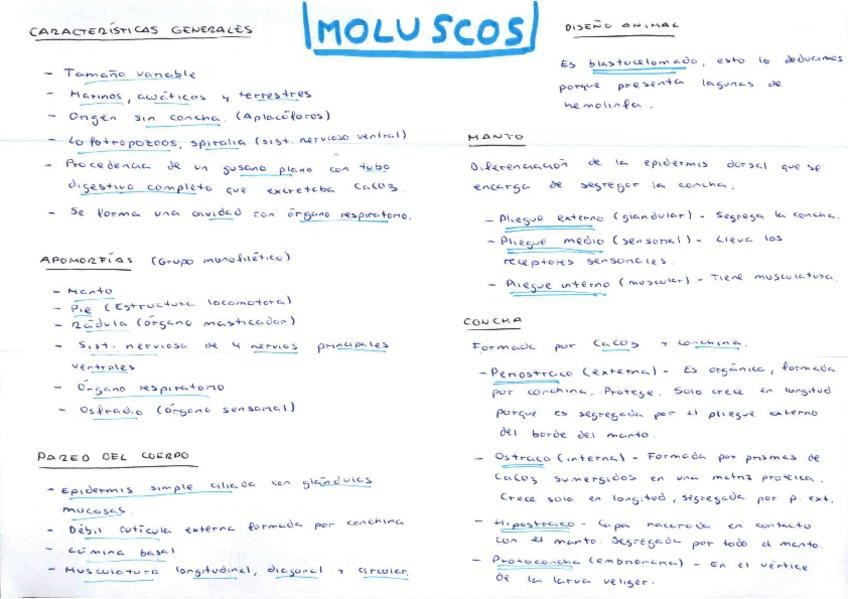 MOLUSCOS
CARACTERÍSTICAS GENERALES
- Tamaño variable
- Marinos, acuáticos y terrestres
- Origen sin concha. (Aplacóforos)
- Lofotropozoos, spiralia (sist. nervioso ventral)
- Procedencia de un gusano plano con tubo
digestivo completo que excretaba CaCO3.
- Se forma una cavidad con órgano respiratorio.
APOMORFÍAS (Grupo monofilético)
- Manto
- Pie (Estructura locomotora)
- Rádula (órgano masticador)
- Sist. nervioso de 4 nervios principales
ventrales
- Órgano respiratorio
- Osfradio (órgano sensorial)
PARED DEL CUERPO
- Epidermis simple ciliada con glándulas
mucosas.
- Débil cutícula externa formada por conchina
- Lámina basal
- Musculatura longitudinal, diagonal y circular.
DISEÑO ANIMAL
Es blastocelomado, esto lo deducimos
porque presenta lagunas de
hemolinfa.
MANTO
Diferenciación de la epidermis dorsal que se
encarga de segregar la concha.
- Pliegue externo (glandular) - Segrega la concha.
- Pliegue medio (sensorial) - Lleva los
receptores sensoriales.
- Pliegue interno (muscular) - Tiene musculatura.
CONCHA
Formada por CaCO3 y conchina.
- Periostraco (externa) - Es orgánica, formada
por conchina. Protege. Solo crece en longitud
porque es segregada por el pliegue externo
del borde del manto.
- Ostraco (interna) - Formada por prismas de
CaCO3 sumergidos en una matriz proteica.
Crece solo en longitud, segregada por p. ext.
- Hipostraco - Capa nacarada en contacto
con el manto. Segregada por todo el manto.
- Protoconcha (embrionaria) - En el vértice
de la larva veliger.